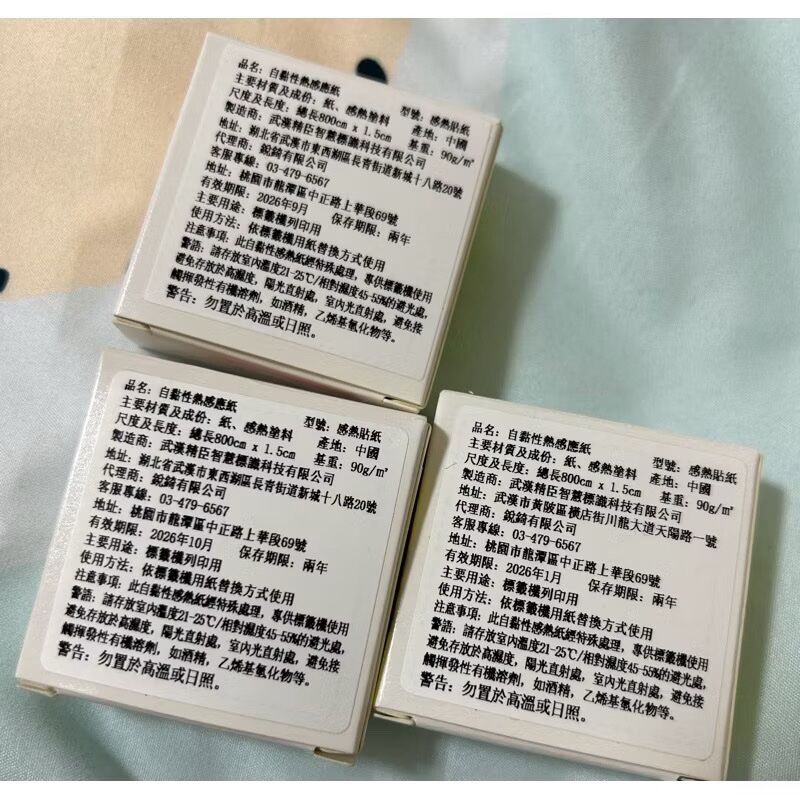 品名：自黏性熱感應紙
主要材質及成份：紙、感熱塗料 型號：感熱貼紙
尺度及長度：總長800cm x 1.5cm 產地：中國
製造商：武漢精臣智慧標識科技有限公司 基重：90g/㎡
地址：湖北省武漢市東西湖區長青街道新城十八路20號
代理商：銳錡有限公司
客服專線：03-479-6567
地址：桃園市龍潭區中正路上華段69號
有效期限：2026年9月 保存期限：兩年
主要用途：標籤機列印用
使用方法：依標籤機用紙替換方式使用
注意事項：此自黏性感熱紙經特殊處理，專供標籤機使用
警語：請存放室內溫度21-25℃/相對濕度45-55%的避光處，
避免存放於高濕度，陽光直射處，室內光直射處，避免接
觸揮發性有機溶劑，如酒精，乙烯基氫化物等。
警告：勿置於高溫或日照。
品名：自黏性熱感應紙
主要材質及成份：紙、感熱塗料 型號：感熱貼紙
尺度及長度：總長800cm x 1.5cm 產地：中國
製造商：武漢精臣智慧標識科技有限公司 基重：90g/㎡
地址：湖北省武漢市東西湖區長青街道新城十八路20號
代理商：銳錡有限公司
客服專線：03-479-6567
地址：桃園市龍潭區中正路上華段69號
有效期限：2026年10月 保存期限：兩年
主要用途：標籤機列印用
使用方法：依標籤機用紙替換方式使用
注意事項：此自黏性感熱紙經特殊處理，專供標籤機使用
警語：請存放室內溫度21-25℃/相對濕度45-55%的避光處，
避免存放於高濕度，陽光直射處，室內光直射處，避免接
觸揮發性有機溶劑，如酒精，乙烯基氫化物等。
警告：勿置於高溫或日照。
品名：自黏性熱感應紙
主要材質及成份：紙、感熱塗料 型號：感熱貼紙
尺度及長度：總長800cm x 1.5cm 產地：中國
製造商：武漢精臣智慧標識科技有限公司 基重：90g/㎡
地址：武漢市黃陂區橫店街川龍大道天陽路一號
代理商：銳錡有限公司
客服專線：03-479-6567
地址：桃園市龍潭區中正路上華段69號
有效期限：2026年1月 保存期限：兩年
主要用途：標籤機列印用
使用方法：依標籤機用紙替換方式使用
注意事項：此自黏性感熱紙經特殊處理，專供標籤機使用
警語：請存放室內溫度21-25℃/相對濕度45-55%的避光處，
避免存放於高濕度，陽光直射處，室內光直射處，避免接
觸揮發性有機溶劑，如酒精，乙烯基氫化物等。
警告：勿置於高溫或日照。